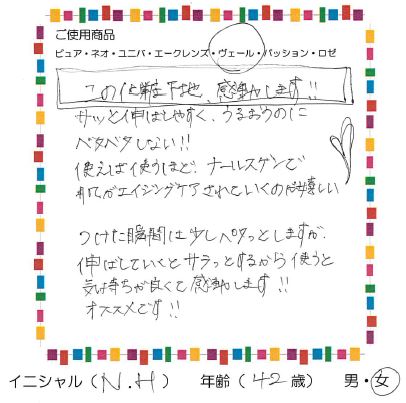 ご使用商品
ピュア・ネオ・ユニバ・エークレンズ・ヴェール・パッション・ロゼ
この化粧下地、感動します!!
サッと伸ばしやすく、うるおうのに
ベタベタしない!!
使えば使うほど、ナールスゲンで
肌がエイジングケアされていくのが嬉しい
つけた瞬間は少しペタっとしますが、
伸ばしていくとサラっとするから使うと
気持ちが良くて感動します!!
オススメです!!
イニシャル(N.H) 年齢(42歳) 男・女